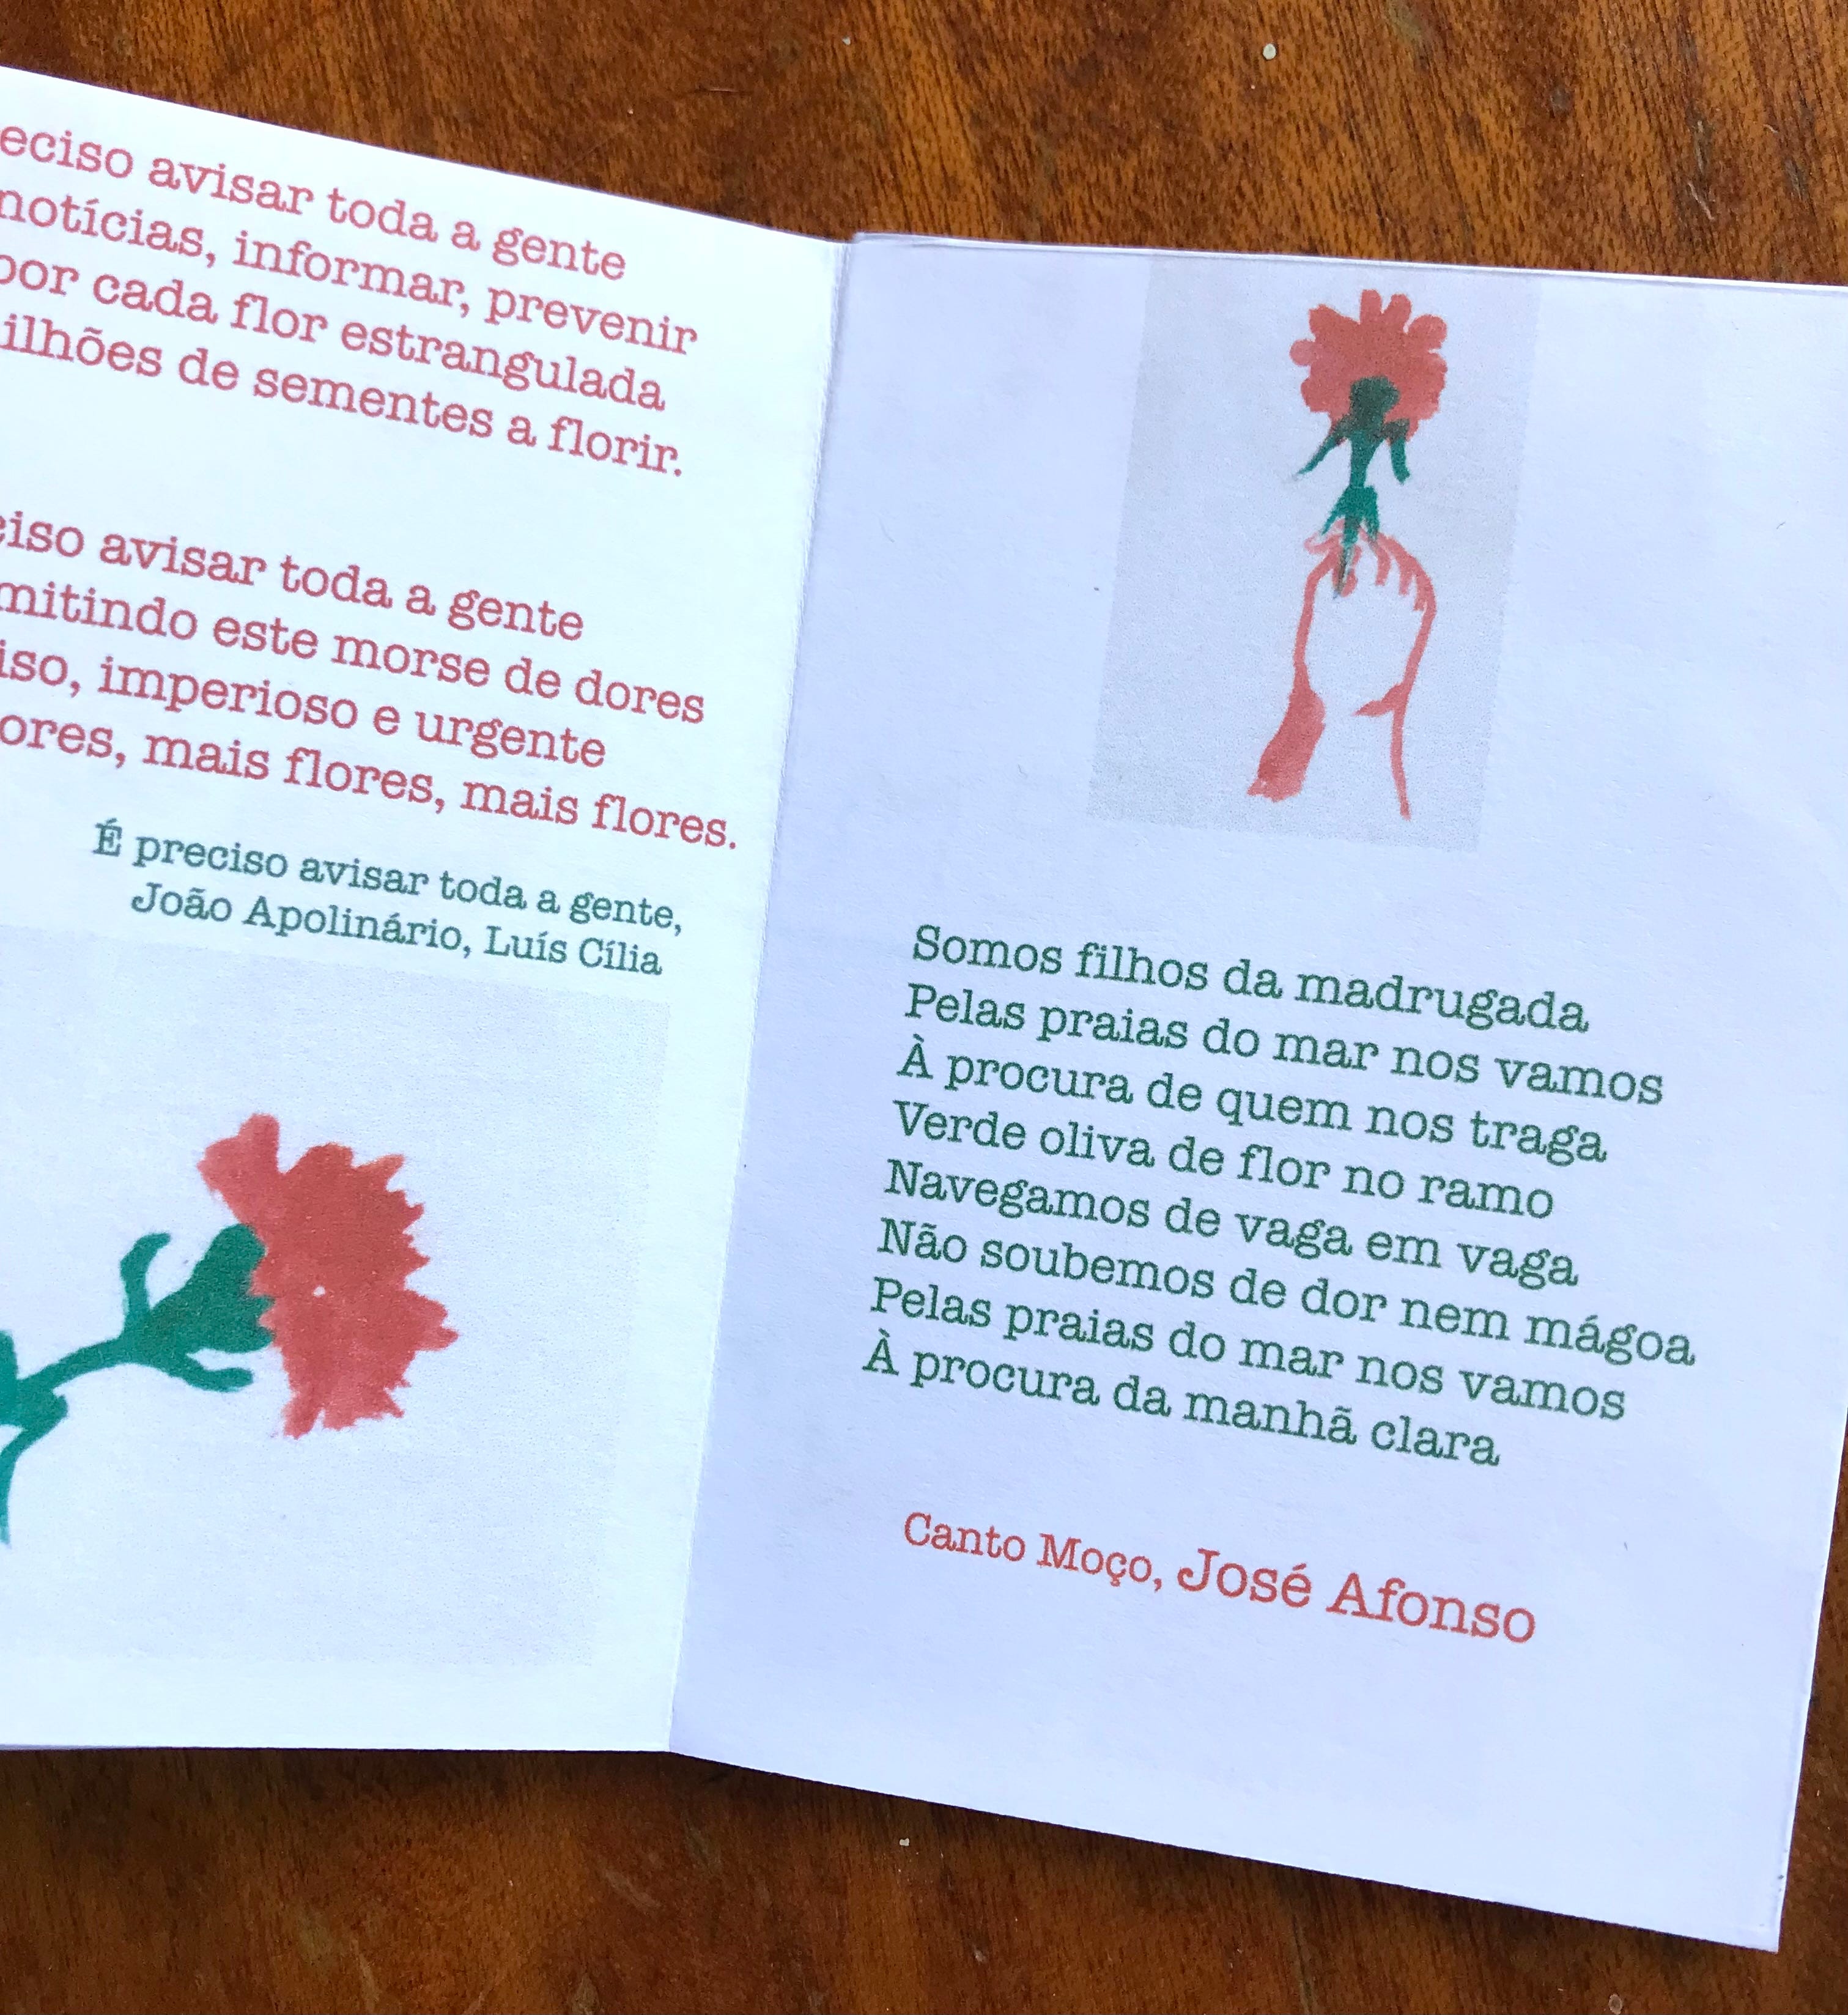 avisar toda a gente
notícias, informar, prevenir
por cada flor estrangulada
de sementes a florir.
avisar toda a gente
este morse de dores
imperioso e urgente
mais flores, mais flores.
É preciso avisar toda a gente,
João Apolinário, Luís Cília
Somos filhos da madrugada
Pelas praias do mar nos vamos
À procura de quem nos traga
Verde oliva de flor no ramo
Navegamos de vaga em vaga
Não soubemos de dor nem mágoa
Pelas praias do mar nos vamos
À procura da manhã clara
Canto Moço, José Afonso